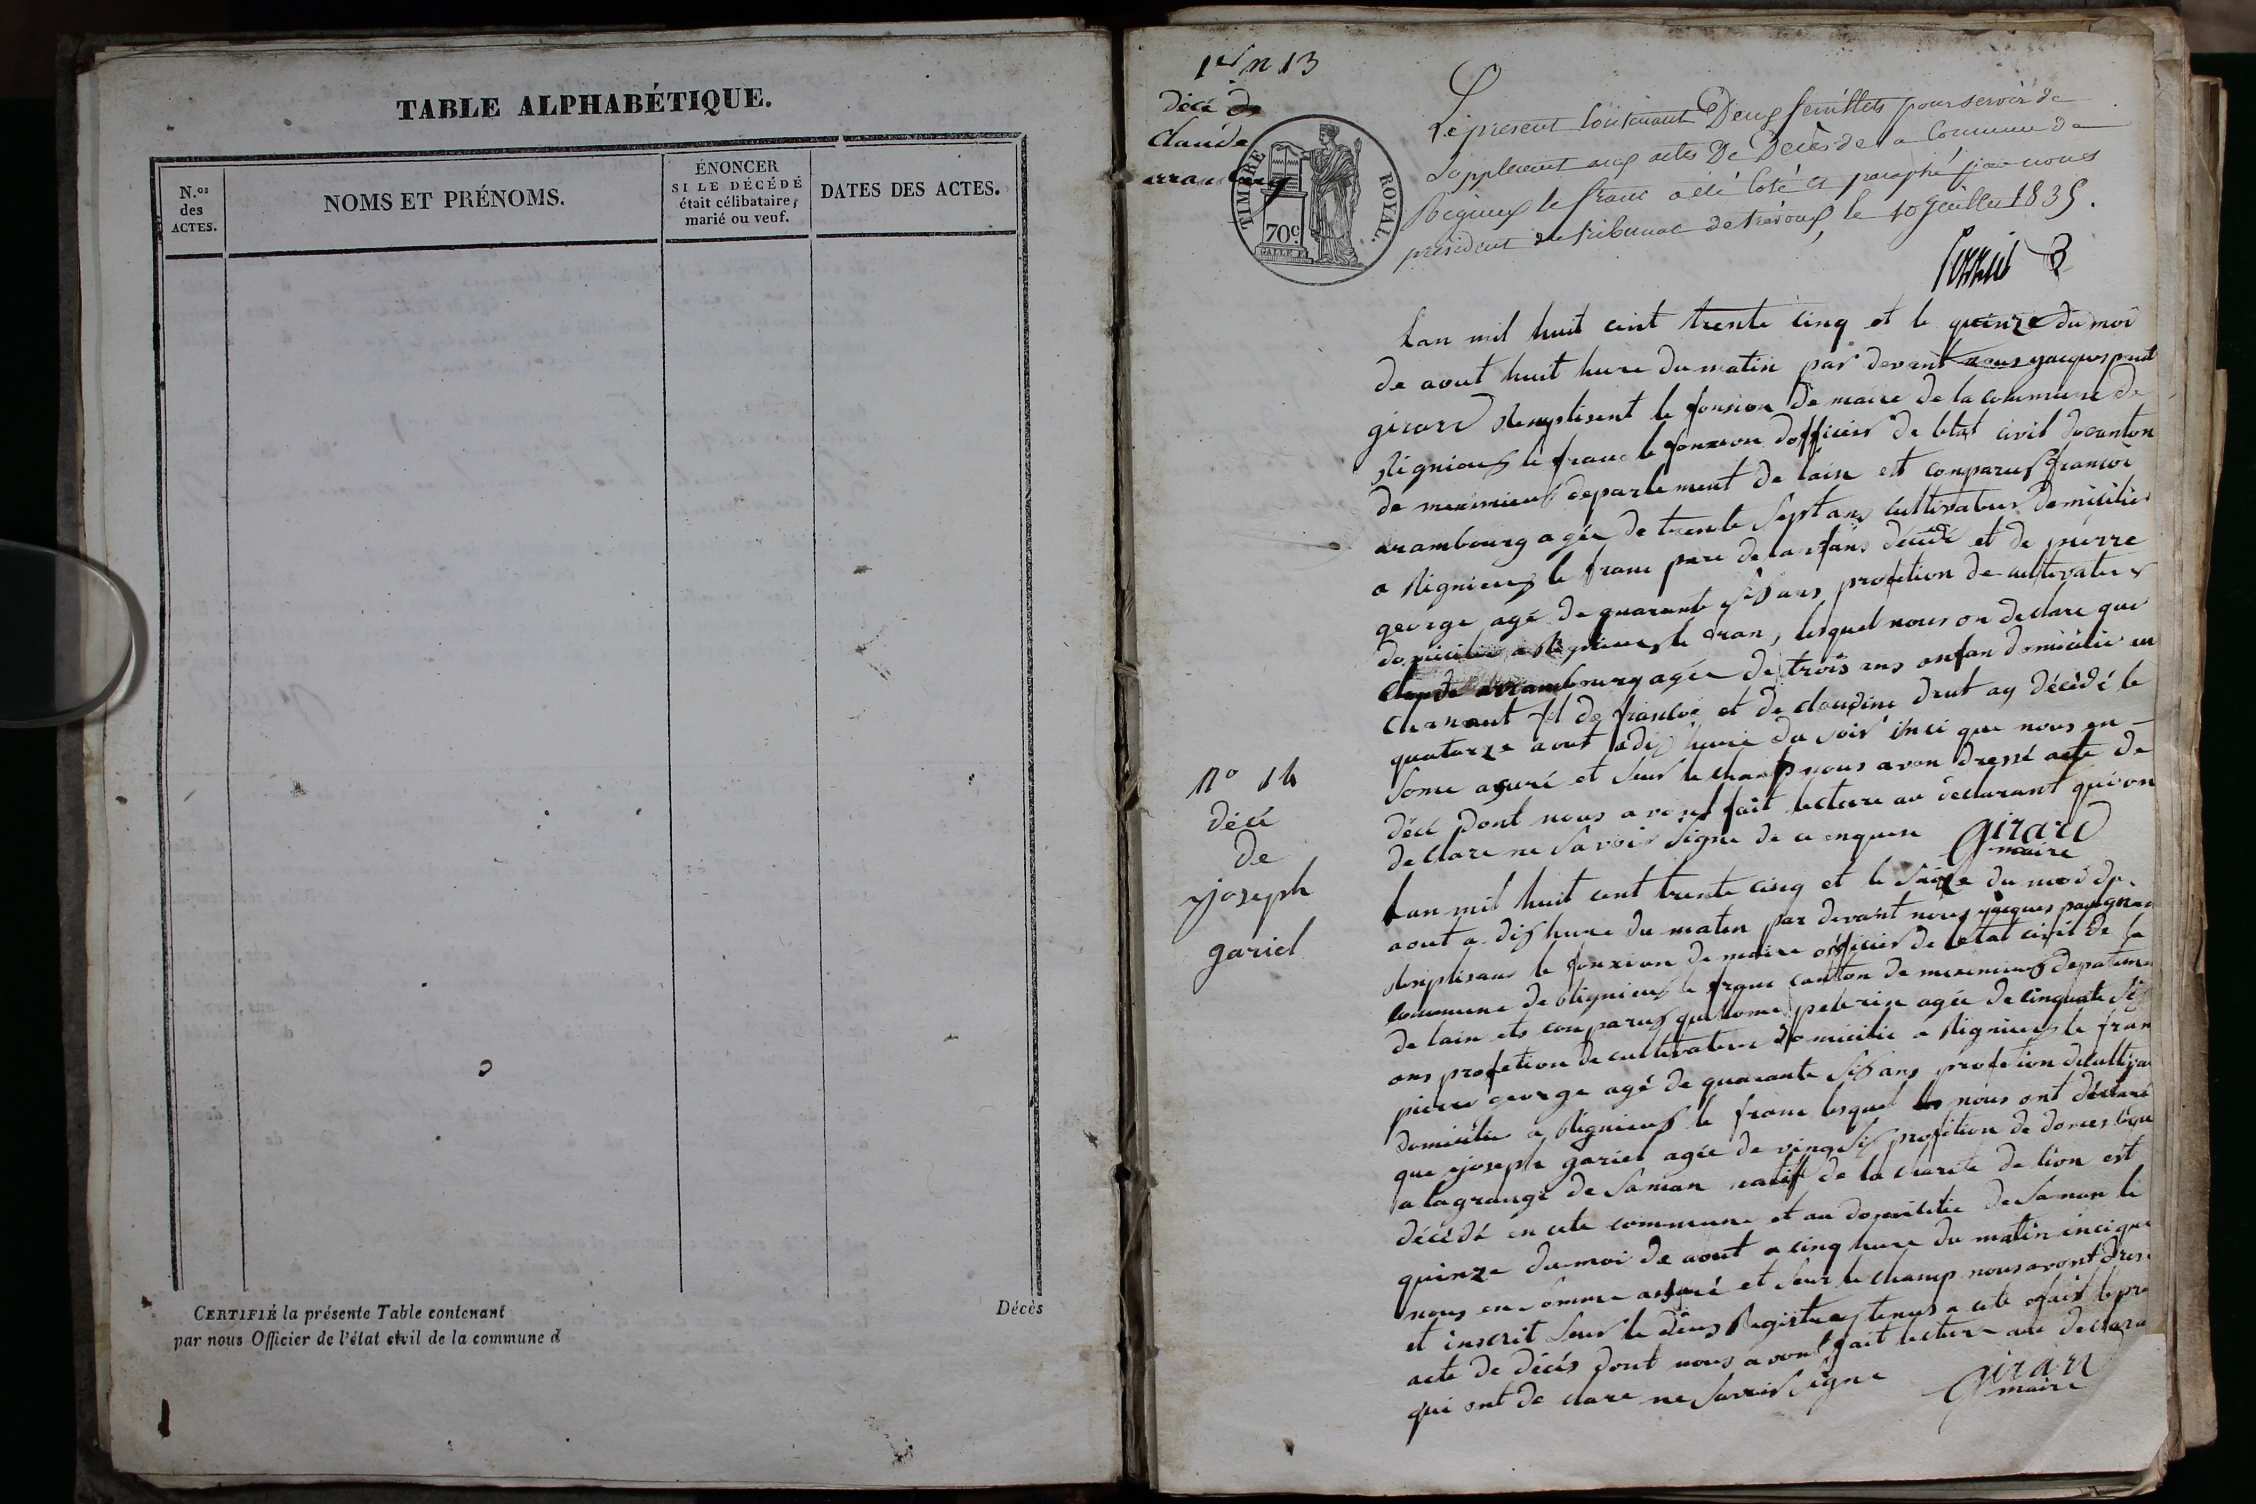 TABLE ALPHABÉTIQUE.
N.os
des
ACTES.
NOMS ET PRÉNOMS.
ÉNONCER
SI LE DÉCÉDÉ
était célibataire,
marié ou veuf.
DATES DES ACTES.
CERTIFIÉ la présente Table contenant
par nous Officier de l'état civil de la commune d
Décès
1er n 13
décé de
Claude
arrambourg
TIMBRE ROYAL.
70c
Le présent contenant Deux feuillets pour servir de
supplement aux actes De Décès de la Commune de
Rignieux le franc a été coté et paraphé par nous
president du tribunal de trevoux, le 10 Juillet 1835.
lan mil huit cent trente cinq et le quinze du moi
de aout huit hure du matin par devant nous jacques
girard Remplisent le fonsion de maire de la commune de
Rignieux le franc le fonxion dofficier de letat civil du canton
de meximieux departement de lain est conparus francoi
arambourg agée de trente sept ans cultivateur domicilié
a Rignieux le franc pere de lanfans décédé et de pierre
george agé de quarante six ans profetion de cultivateur
domicilié a Rignieux le fran, lesquel nous on declare que
Claude arrambourg agée de trois ans anfan domicilié en
chanaut fil de francoi et de claudine drut ay décèdé le
quatorze aout a dix hure du soir inci que nous en
some asuré et sur le champ nous avon dressé acte de
décé dont nous avont fait lecture au déclarant qui on
declare ne savoir signe de ce enquru girard
maire
N° 14
décé
de
joseph
gariel
Lan mil huit cent trente cinq et le saize du moi de
aout a dix hure du maten par devant nous jacques
Remplisant le fonxion de maire officier de letat civil de la
commune de Rignieux le franc canton de meximieux
de lain ets conparus guillome peterin agée de cinquate six
ans profetion de cultivateur domicilié a Rignieux le fran
pierre george agé de quarante six ans profetion de
domicilié a Rignieux le franc lesquel nous ont déclaré
que joseph gariel agée de vingt six profetion de
a lagrange de samian natif de la charité de lion est
décédé en cete commune et au domicilie de saman le
quinze du moi de aout a cinq hure du matin inci que
nous en somme assuré et sur le champ nous avont
et inscrit sur le deux Registres tenus a cete
acte de décés dont nous avont fait lecture au
qui ont de clare ne savoir signe girard
maire